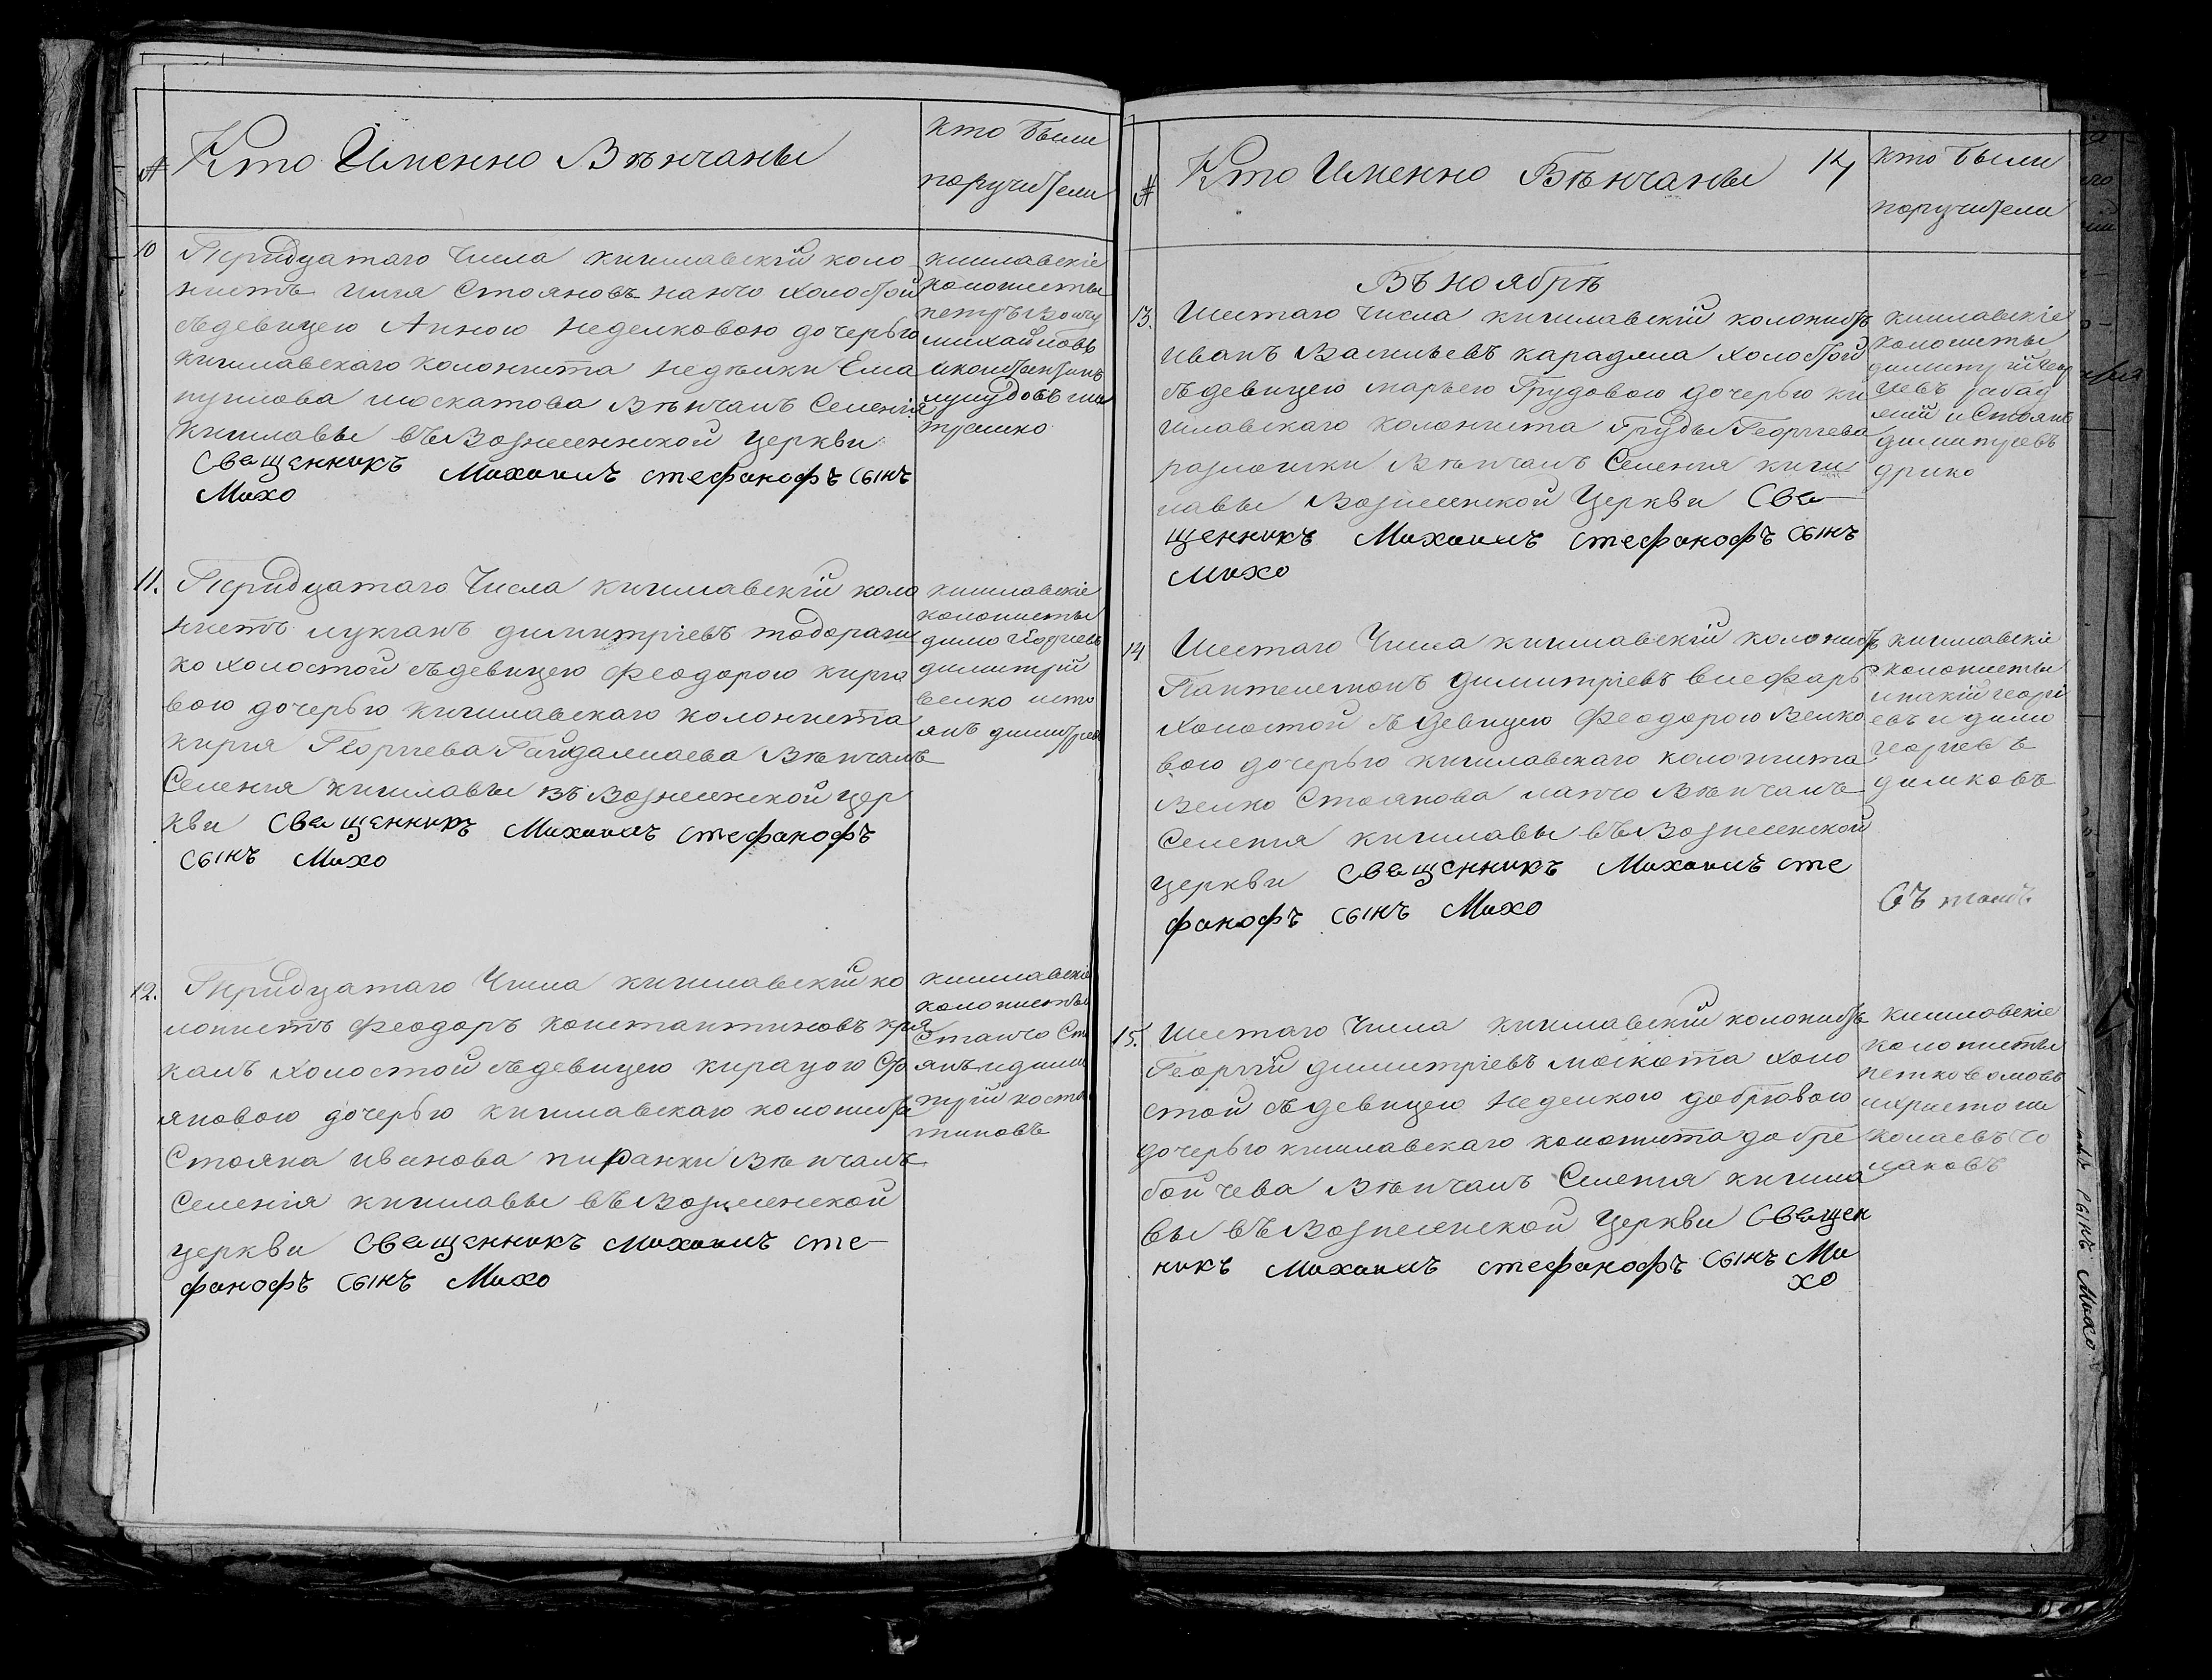 № Кто Именно Вѣнчаны
кто были
поручители
10 Тридцатаго Числа кишлавскій коло
нистъ илія Стояновъ нанчо холостой
съдевицею Анною неделковою дочерью
кишлавскаго колониста неделки
Вѣнчанъ Селенія
кишлавы въВознесенской церкви
Свещенникъ Михаилъ стефанофъ сынъ
Михо
кишлавскіе
колонисты
петръ
михайловъ
иконстантинъ
11. Тридцатаго Числа кишлавскій коло
нистъ лукіанъ димитріевъ тодораки
ко холостой съдевицею феодорою кирго
вою дочерью кишлавскаго колониста
киргия Георгиева Гайдамлаева Вѣнчанъ
Селения кишлавы въ Вознесенской цер
кви Свещенникъ Михаилъ стефанофъ
сынъ Михо
кишлавскіе
колонисты
димо георгиевъ
димитрій
велко исто
янъ димитриев
12. Тридцатаго Числа кишлавскій ко
лонистъ феодоръ константиновъ
холостой съдевицею кирацою Сто
яновою дочерью кишлавскаго колониста
Стояна иванова Вѣнчанъ
Селенія кишлавы въВознесенской
церкви Свещенникъ Михаилъ сте-
фанофъ сынъ Михо
кишлавскіе
колонисты
Станчо Сто
янъ идими
трій коста
тиновъ
№ Кто Именно Вѣнчаны 14
кто были
поручители
Въ ноябрѣ
13. Шестаго Числа кишлавскій колонистъ
иванъ Васильевъ карадяла холостой
съдевицею марьею Грудовою дочерью ки
шлавскаго колониста Груды Георгиева
Вѣнчанъ Селения киш
лавы Вознесенской Церкви Све-
щенникъ Михаилъ стефанофъ сынъ
михо
кишлавскіе
колонисты
димитрій геор
гіевъ
и Стоянъ
димитревъ
дрико
14 Шестаго Числа кишлавскій колонистъ
Пантелемонъ димитріевъ
Холостой съдевицею феодорою велко
вою дочерью кишлавскаго колониста
Велко Стоянова нанчо Вѣнчанъ
Селения кишлавы въВознесенской
церкви Свещенникъ Михаилъ сте
фанофъ сынъ Михо
кишлавскіе
колонисты
георгі
евъ и димо
георгиевъ
димковъ
15. Шестаго Числа кишлавскій колонистъ
Георгій димитріевъ холо
стой съдевицею неделкою добрювою
дочерью кишлавскаго колониста добре
бойчева Вѣнчанъ Селения кишла
вы въВознесенской Церкви Свещен
никъ Михаилъ стефанофъ сынъ Ми
хо
кишловскіе
колонисты
петко
ихристо ни
колаевъ
сынъ Михо